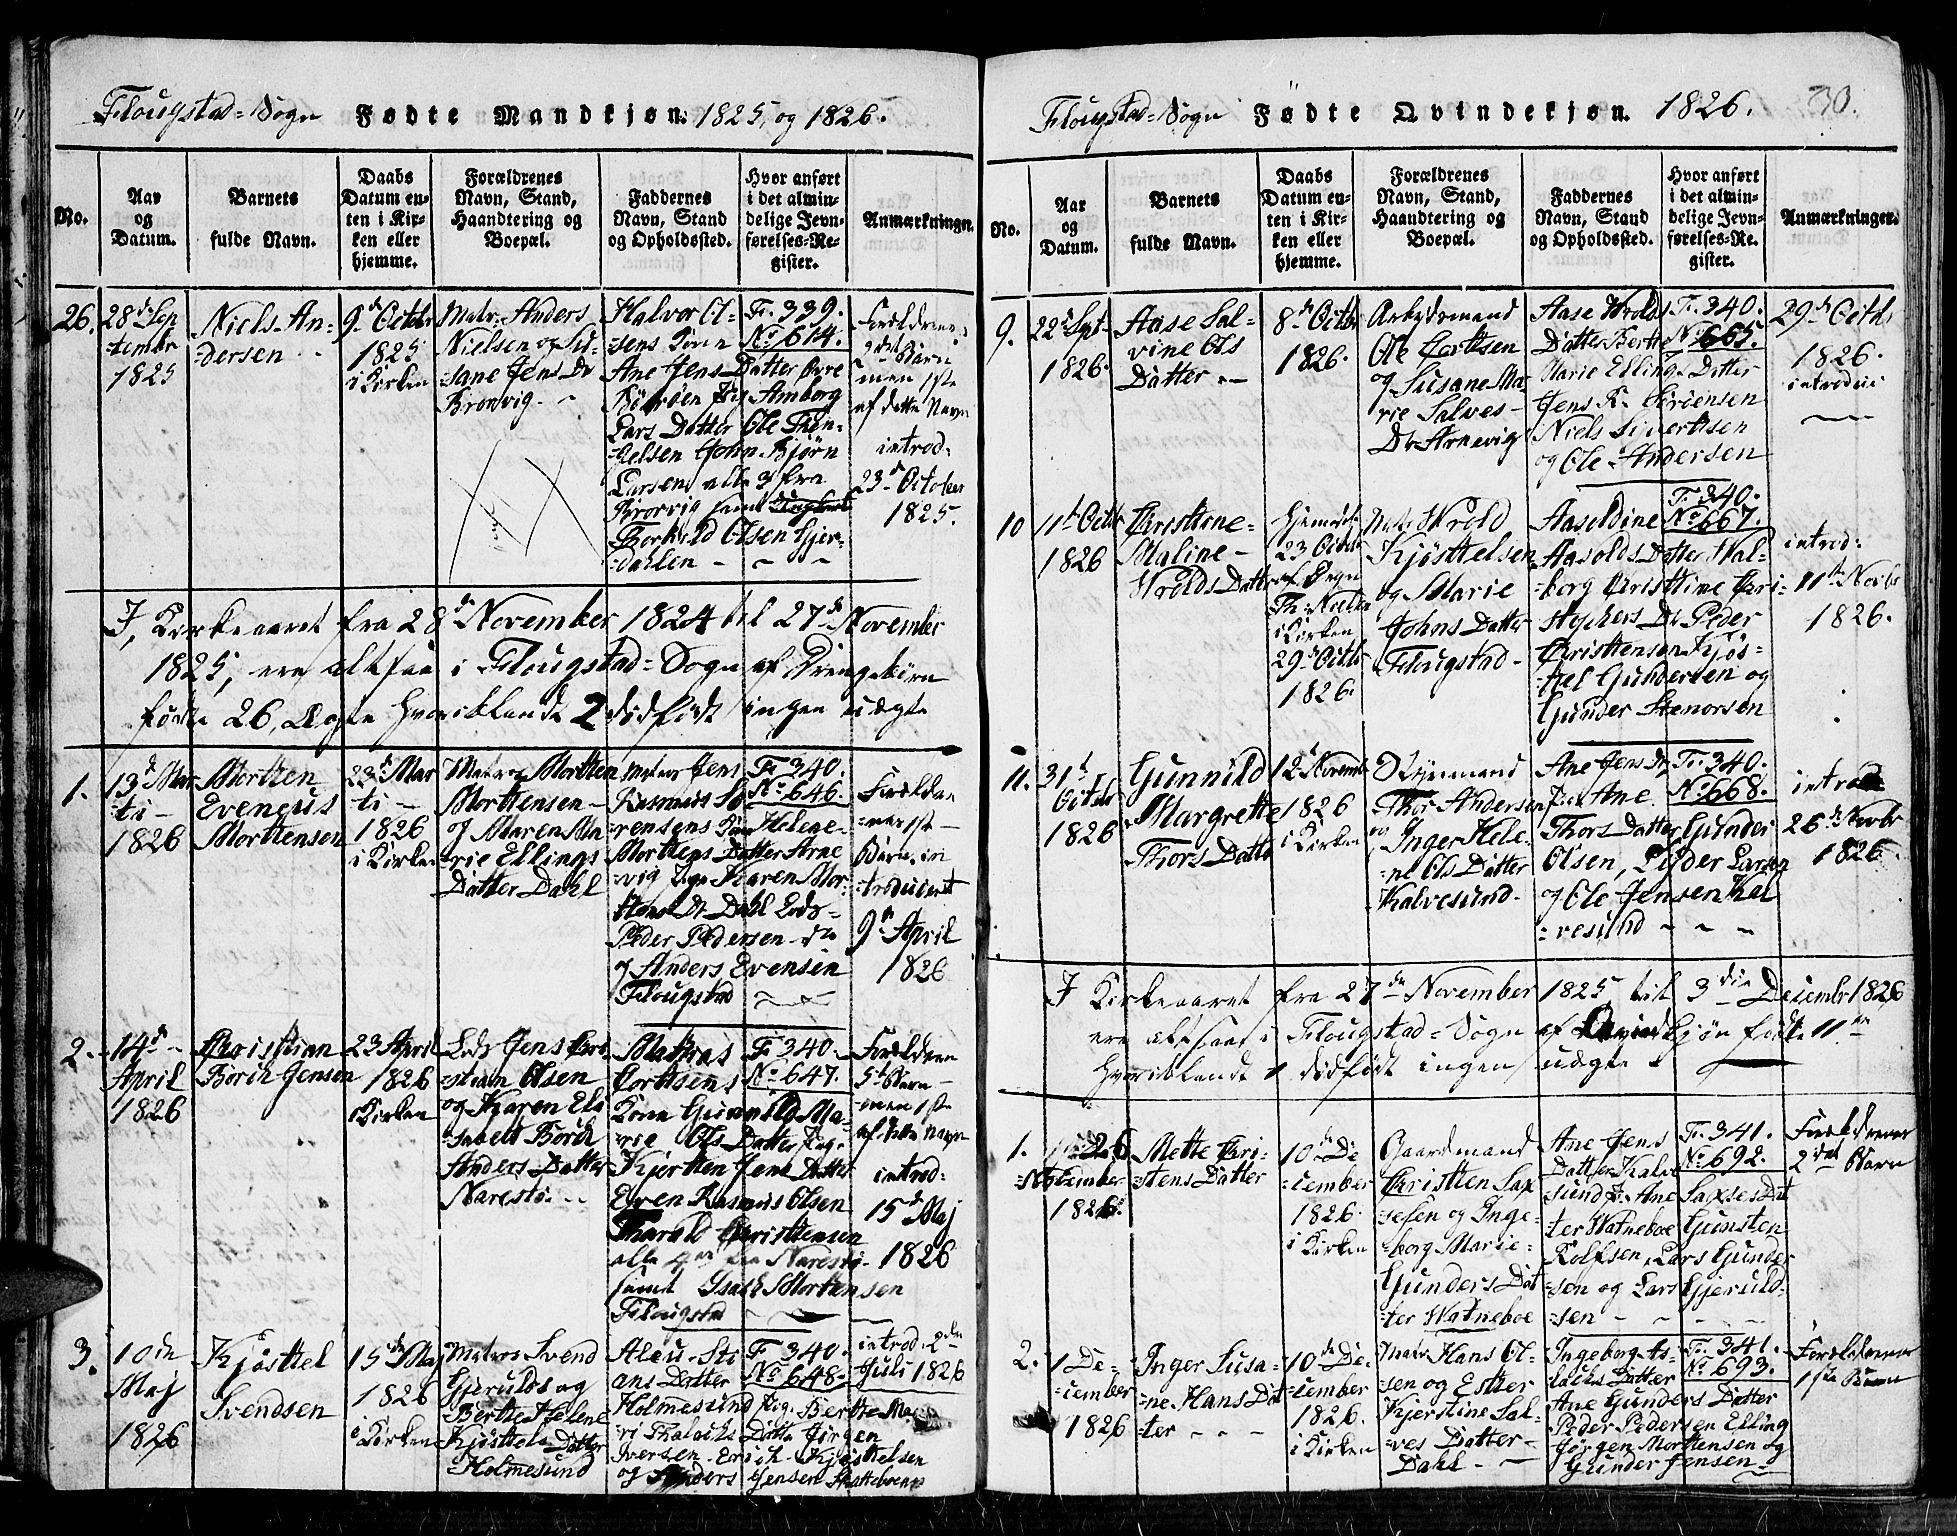 Flougstad=Sogn Fødte Mandkjøn: 1825, og 1826.
No.
Aar
og
Datum.
Barnets
fulde Navn.
Daabs
Datum en-
ten i Kir-
ken eller
hjemme.
Forældrenes
Navn, Stand,
Haandtering og
Boepæl.
Faddernes
Navn, Stand
og Opholdssted.
Hvor anført
i det almin-
delige Jevn-
førelses-Re-
gister.
Anmærkninger.
26.
28de Sep
tembr
1825
Niels An-
dersen
9de Octbr
1825
i Kirken
Matr. Anders
Nielsen og Su-
sane Jens Dr
Brovig
Halvor Ol-
sens Kone
Ane Jens Datter Øvre
Larsen alle 3 fra
Brovig samt
Torkild Olsen Gjer-
dahlen
F. 339.
No 614.
Forældrenes
2det Barn
men 1ste
af dette Navn
introd:
23de October
1825.
I, Kirkeaaret fra 28de November 1824 til 27de November
1825, ere altsaa i Flougstad=Sogn af Drengebørn
fødte 26, Ægte hvoriblandt 2 dødfødt ingen uægte
1.
13de Mar
ti
1826
Morthen
Evenius
Morthensen
23de Mar
ti
1826
i Kirken
Matros Morthen
Morthensen
og Maren Ma
rie Ellings
Datter Dahl
Matros Jens
Rasmus Sø
rensens Kone Helene
Morthens Datter Arne
vig Karen Mor-
thens Dr Dahl Lods
Peder Pedersen
og Anders Evensen
Flougstad
F. 340.
No 646.
Forældre
nes 1ste
Barn, in
troduceret
9de April
1826
2.
14de
April
1826
Christian
Borch Jensen
23 April
1826
i Kirken
Lods Jens Chri
stian Olsen
og Karen Eli
sabeth Borch
Anders Datter
Narestø
Mathias
Corthsens
Kone Gunnild Ma-
rie Ols Datter Pig.
Kjersten Jens Datter
Even Rasmus Olsen
Tharald Christhensen
alle fra Narestø
samt Isach Morthensen
Flougstad
F. 340.
No 647.
Forældrenes
5te Barn
men 1ste
af dette Navn
introd:
15de Maj
1826
3.
10de
Maj
1826
Kjøsthel
Svendsen
15de Maj
1826
i Kirken
Matros Svend
Gjerulds og
Berthe Helene
Kjøsthels Datter
Holmesund
Datter
Holmesund Pig. Berthe Ma
Datter Jørgen
Iversen Erich Kjøsthelsen
og Anders Jensen
F. 340.
No 648.
introd. 2den
Juli 1826
Flougstad=Sogn Fødte Qvindekjøn. 1826. 30.
No.
Aar
og
Datum.
Barnets
fulde Navn.
Daabs
Datum en-
ten i Kir-
ken eller
hjemme.
Forældrenes
Navn, Stand,
Haandtering og
Boepæl.
Faddernes
Navn, Stand
og Opholdssted.
Hvor anført
i det almin-
delige Jevn-
førelses-Re-
gister.
Anmærkninger.
9.
22de Sept.
1826.
Aase Sal-
vine Ols
Datter
8de Octbr
1826.
Arbeidsmand
Ole Corthsen
og Susane Ma-
rie Salves
Dr Arnevig
Aase Wrolds
Datter Berthe
Marie Ellings Datter
Jens R. Sørensen
Niels Siverthsen
og Ole Andersen
F. 340.
No 665.
29de Octbr
1826.
introduc
10
11te Octbr
1826
Christhine
Maline
Wrolds Datter
Hjemmedøbt
23 Octbr
i Kirken
29de Octbr
1826.
Matr. Wrold
Kjøsthelsen
og Marie
Johns Datter
Flougstad
Aasoldine
Aasolds Datter Wal-
borg Christhine Chri-
stophers Dr Peder
Christhensen Kjøs-
thel Gundersen og
Gunder Stenorsen
F. 340.
No 667.
introd:
11te Novbr
1826.
11.
31te
October
1826
Gunnild
Margrethe
Thors Datter
12te Novemb
1826
i Kirken
Thor Andersen
og Inger Hele-
ne Ols Datter
Kalvesund
Ane Jens Dr
Pig. Ane
Thors Datter Gunder
Olsen, Peder Larsen
og Ole Jensen Kal
vesund
F. 340.
No 668.
introd
26de Novbr
1826.
I Kirkeaaret fra 27de November 1825 til 3die Decembr 1826
ere altsaa i Flougstad=Sogn af Qvindekjøn fødte 11
hvoriblandt 1 dødfødt ingen uægte
1.
26
November
1826.
Mette Chri-
stens Datter
10de De
cember
1826.
i Kirken
Gaardmand
Christhen Sax
sesen og Inge-
borg Marie
Gunders Dat
ter Watneboe
Ane Jens
Datter Kalve
sund P. Ane Saxses Dat
ter Watneboe Gunsten
Rolfsen, Lars Gunder
sen og Lars Gjeruld-
sen
F. 341.
No 692.
Forældrenes
2det Barn
2.
1 De-
cember
1826
Inger Susa-
ne Hans Dat
ter
10de De-
cember
1826.
i Kirken
Matr. Hans Ol-
sen og Esther
Kjerstine Sal-
ves Datter
Dahl
Ingeborg As-
lachs Datter
Ane Gunders Datter
Peder Pedersen Elling
Jørgen Morthensen og
Gunder Jensen
F. 341.
No 693.
Forældrenes
1ste Barn